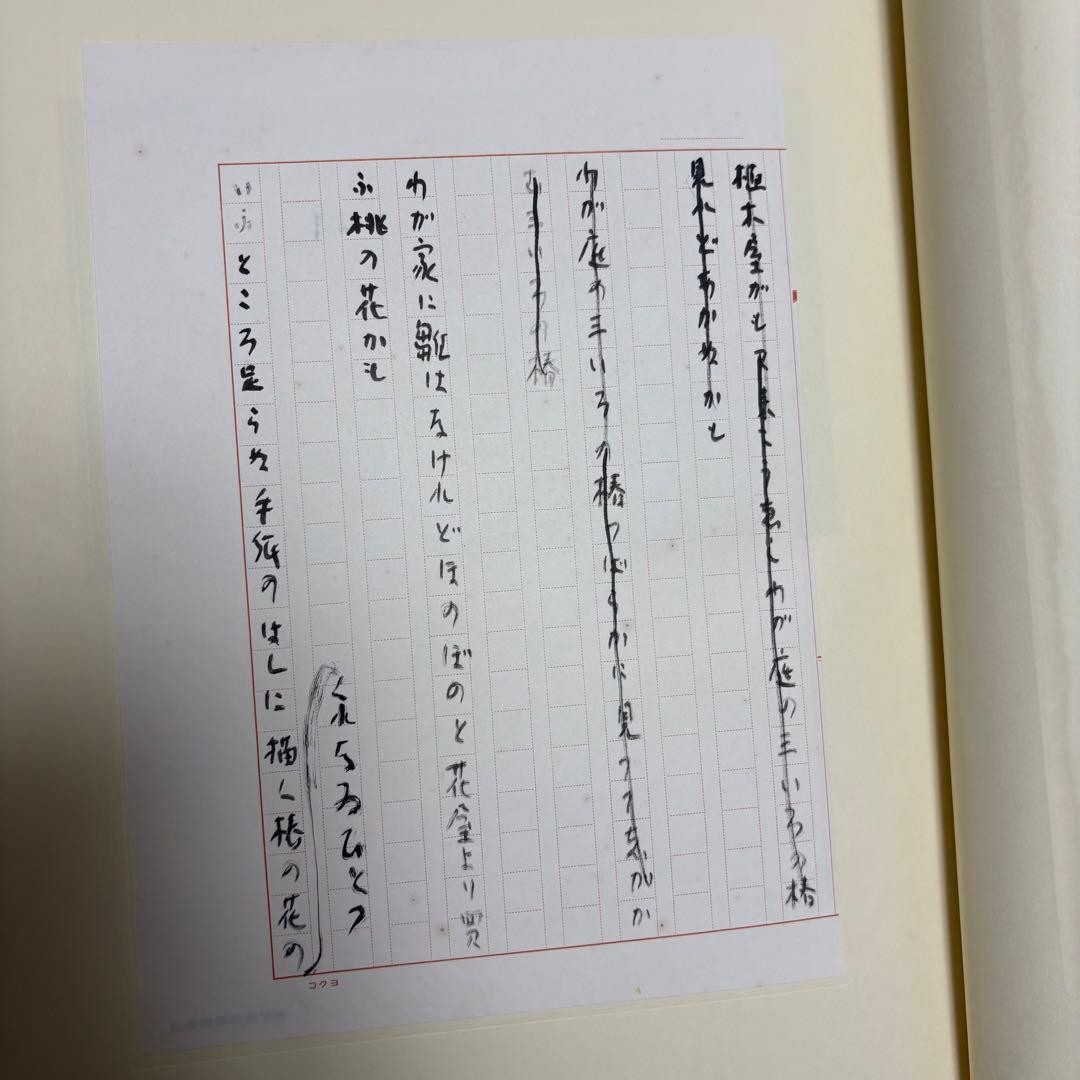 植木屋がも 来 わが庭の三いろの椿
見れどあかぬかも
わが庭の三いろの椿つば かに見 か
むさ いろの椿
わが家に雛はなけれどほのぼのと花屋より買
ふ桃の花かも
くれなゐひとつ
いふところ足らぬ手紙のはしに描く椿の花の
コクヨ